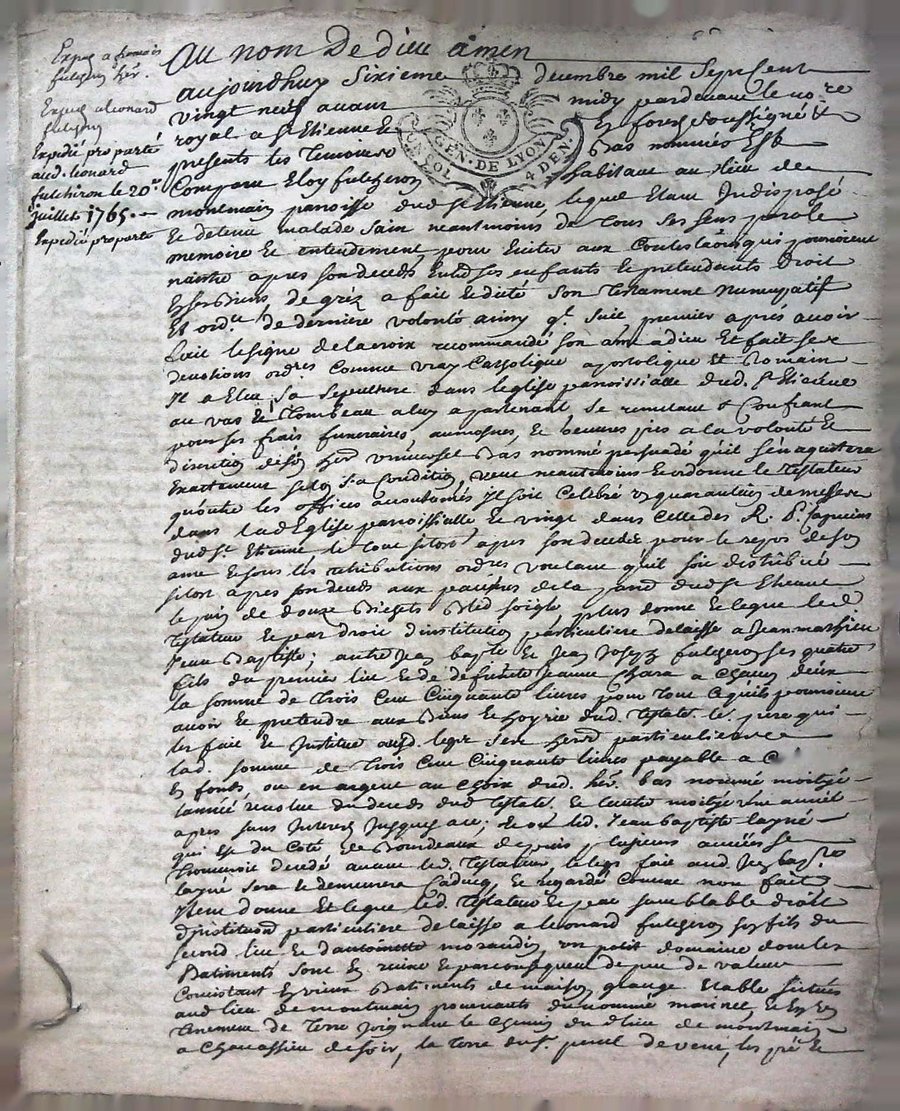 Au nom De dieu amen
aujourdhuy Sixieme decembre mil Sept Cent
vingt neuf avant midy pardevant le no.re
royal a St Etienne & soussigné &
presents les Temoins bas nommés Est
Comparu Eloy fulchiron habitant au lieu de
montmain paroisse dud St Etienne, lequel Etant Indisposé
Et detenu malade Sain neantmoins de Tous Ses Sens parole
memoire Et entendement, pour Eviter aux Contestaons qui pourroient
naitre apres Son deceds Entre Ses enfants Et pretendants Droit
En Ses Biens, de gréz a fait Et dicté Son Testament Nuncupatif
Et ord.re de derniere volonté ainsy q.l Suit premier aprés avoir
fait le signe de la croix recommandé Son ame a dieu Et fait
devotions ordres Comme vray Catholique apostolique Et Romain
Il a Elu Sa Sepulture dans l'eglise paroissialle dud. St Etienne
au vas Et Tombeau a luy apartenant Se remetant &
pour Ses frais funeraires, aumosnes, Et heuvres pies a la volonté Et
discretion de Son her universel bas nommé persuadé quil S'en aquittera
Exactement Selon Sa Condition, veut neantmoins Et ordonne le Testateur
qu'outre les offices acoutumés Il Soit Celebré quarantaine de messes
dans lad Eglise paroissialle Et vingt dans Celle des R. P. Capucins
dud St Etienne le tout Sitost apres Son decedz pour le repos de Son
ame Et Sous les retributions ordres voulant quil Soit distribué
Sitost apres Son deceds aux pauvres de la dud St Etienne
le pain de douze Bichets Bled Seigle, plus donne Et legue led
Testateur Et par droit d'institution particuliere delaisse a Jean mathieu
Jean Baptiste; autre Jean bapte Et Jean Joseph fulchiron Ses quatre
fils du premier lit Et de defunte Jeanne Chara a Chacun deux
la Somme de Trois Cent Cinquante livres pour Tout Ce quils pourroient
avoir Et pretendre aux Biens Et hoyrie dud. Testat. le. pere qui
les fait Et Institue aud. legz Ses her particuliers
lad. Somme de Trois Cent Cinquante livres payable a
En fonds, ou en argent au Choix dud. her. bas nommé moitye
lannée revolue du deceds dud Testat. Et lautre moitye une année
apres Sans Interest Jusques a ce; Et ou led. Jean baptiste layné
qui Est du Coté de Bourdeaux depuis plusieurs années Se
trouveroit decedé avant led. Testateur, le legz fait aud. Jean bap.te
layné Sera Et demeurera Caducq Et regardé Comme non fait
Item donne Et legue led. Testateur Et par Semblable droit
d'institution particuliere delaisse a leonard fulchiron Son fils du
Second lit Et d'antoinette moraudin un petit domaine dont les
Batiments Sont En ruine Et par consequent de peu de valeur
Consistant En vieux Batiments de maison grange Etable Situés
aud lieu de montmain provenants du nommé marinet, Et En un
Tenement de Terre Joignant le Chemin du lieu de montmain
a Chavassieu de Soir, la Terre du S.r de vent, les pré Et
GEN. DE LYON
4 DEN.
Expedié pro parté
aud. leonard
fulchiron le 20.e
Juillet 1765.
Expedié pro parté